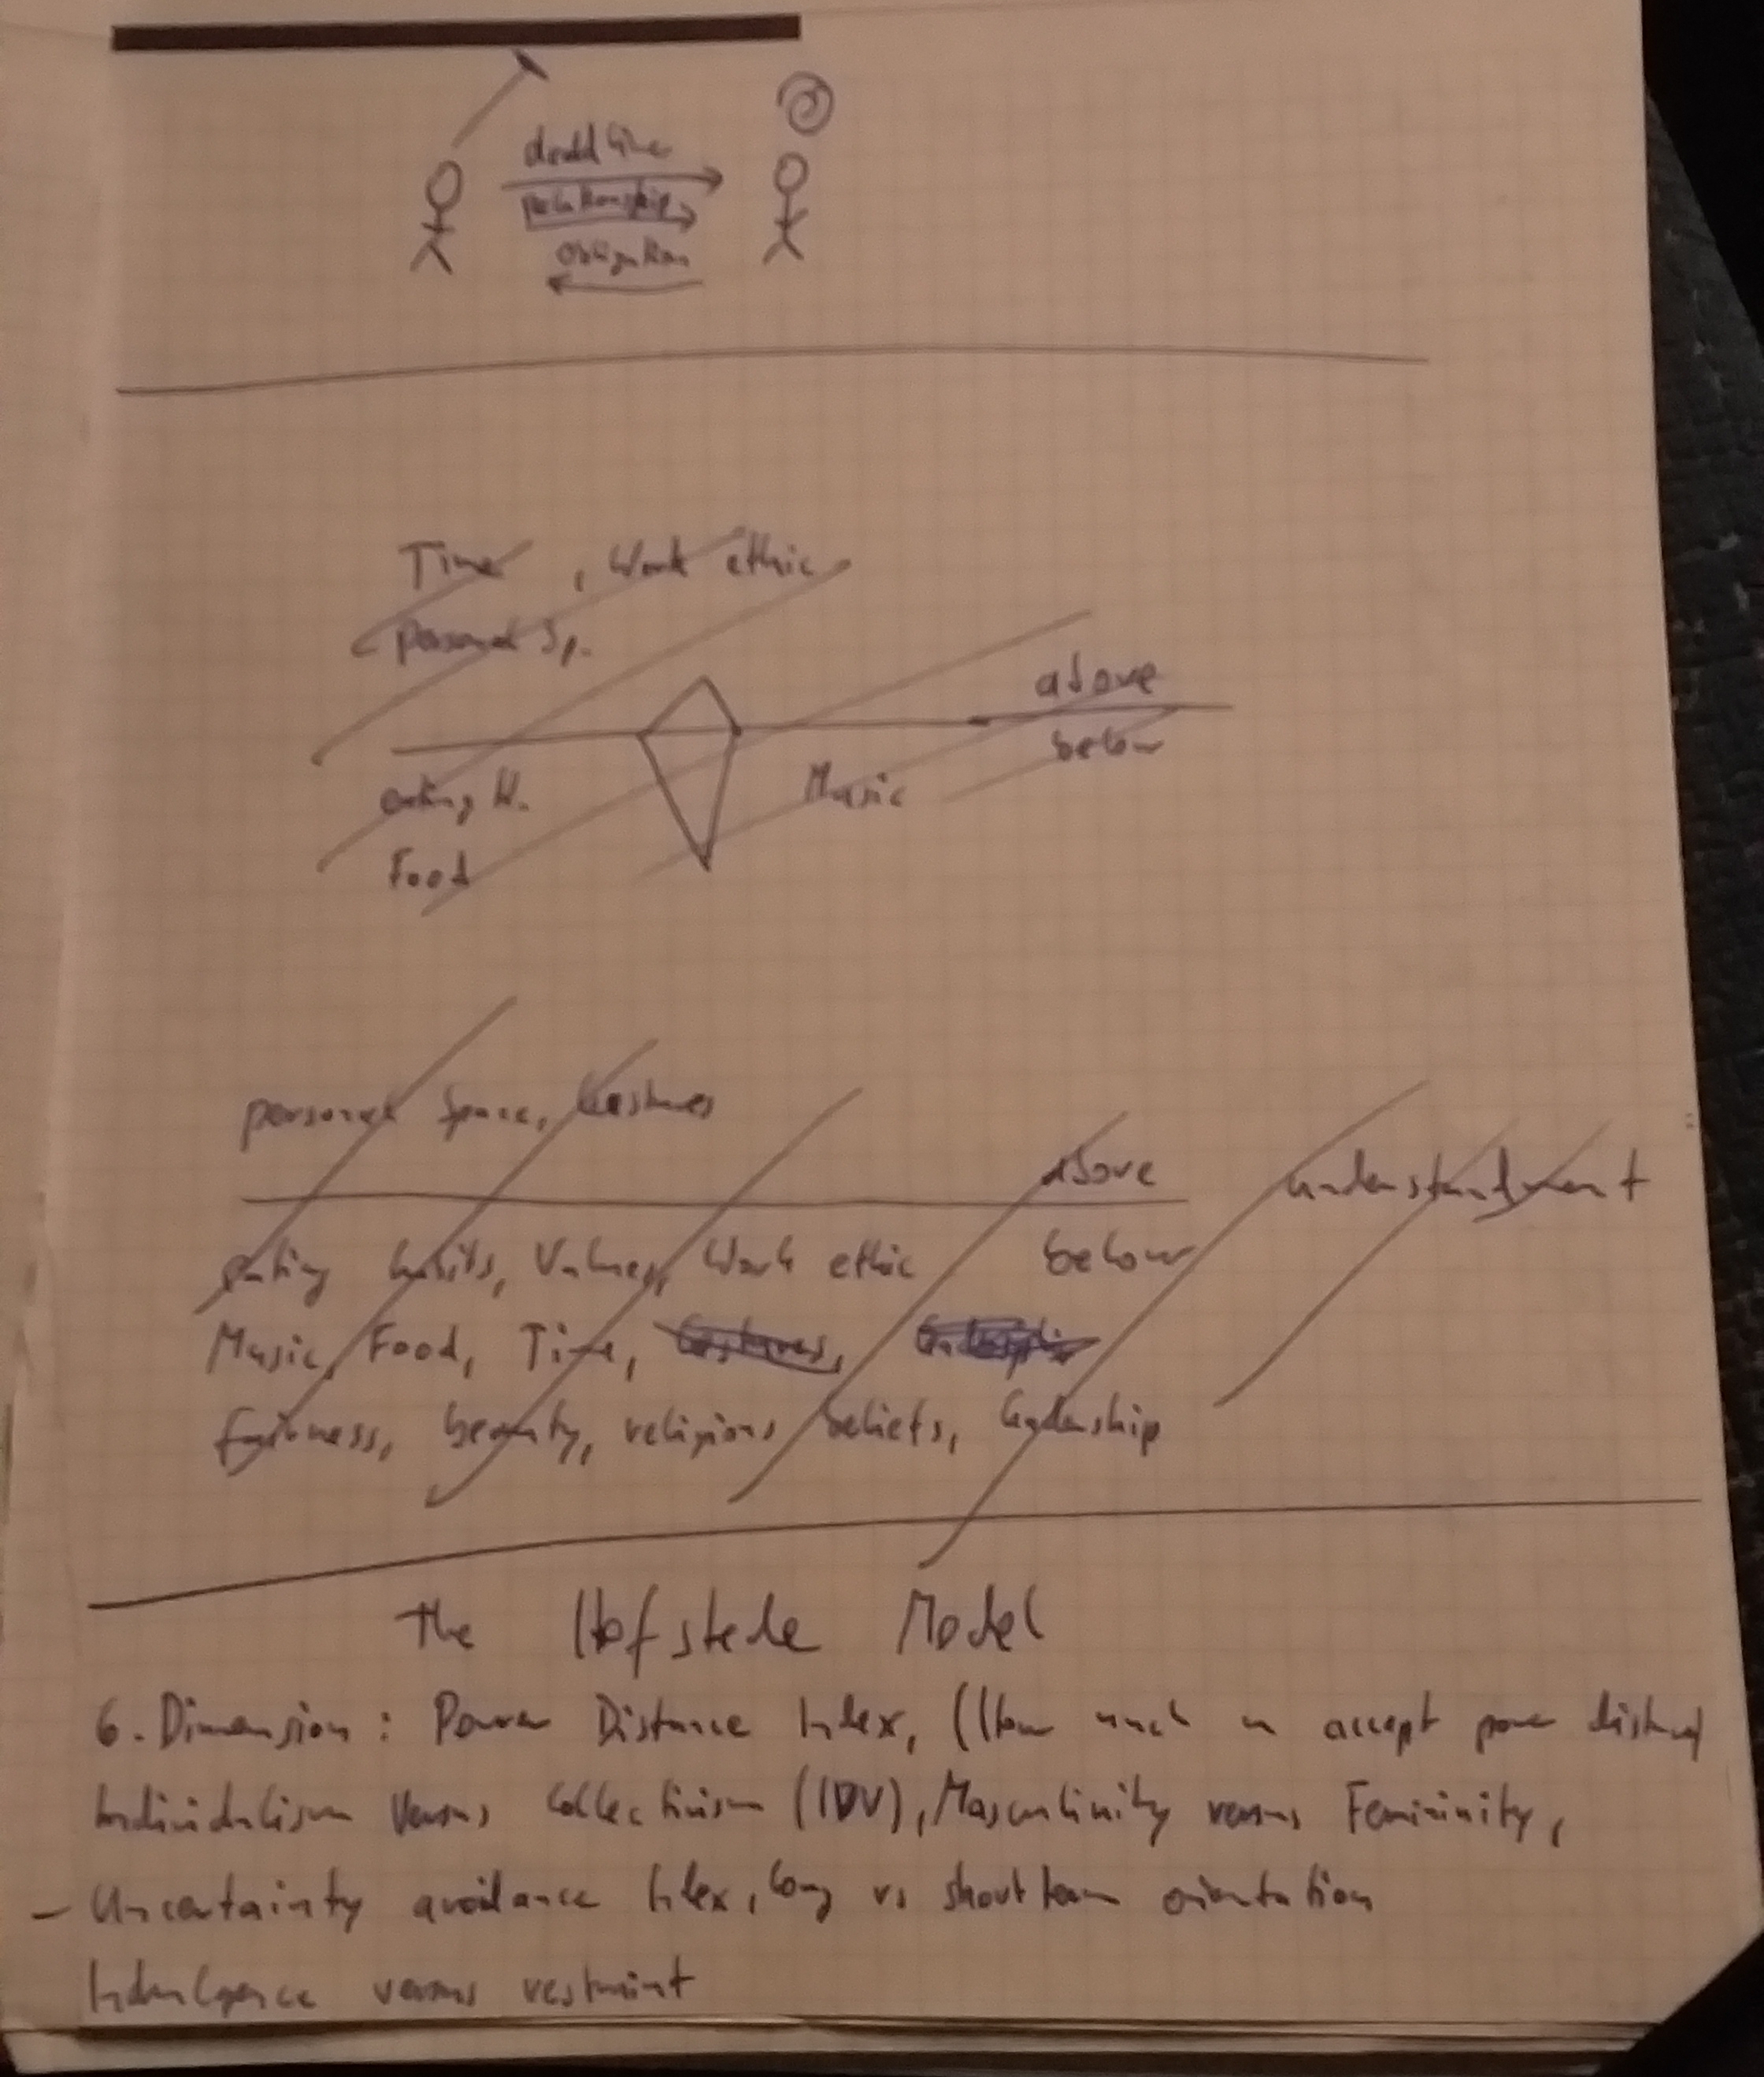 deadline
relationship
obligation
Time , Work ethic
personal Sp.
above
below
eating H.
Music
Food
personal Space, Gestures
above
understandment
eating habits, Values, Work ethic
below
Music, Food, Time, Gestures,
fairness, beauty, religious beliefs, leadership
The Hofstede Model
6. Dimension : Power Distance Index, (How much accept power distance
Individualism Versus Collectivism (IDV), Masculinity versus Femininity,
- Uncertainty avoidance Index, long vs short term orientation
Indulgence versus restraint